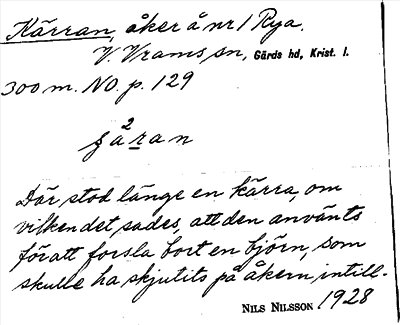 Kärran, åker å nr 1 Rya.
V. Vrams sn, Gärds hd, Krist. l.
300 m. NO. p. 129
2
åran
Där stod länge en kärra, om
vilken det sades, att den använts
för att forsla bort en björn, som
skulle ha skjutits på åkern intill.
NILS NILSSON 1928